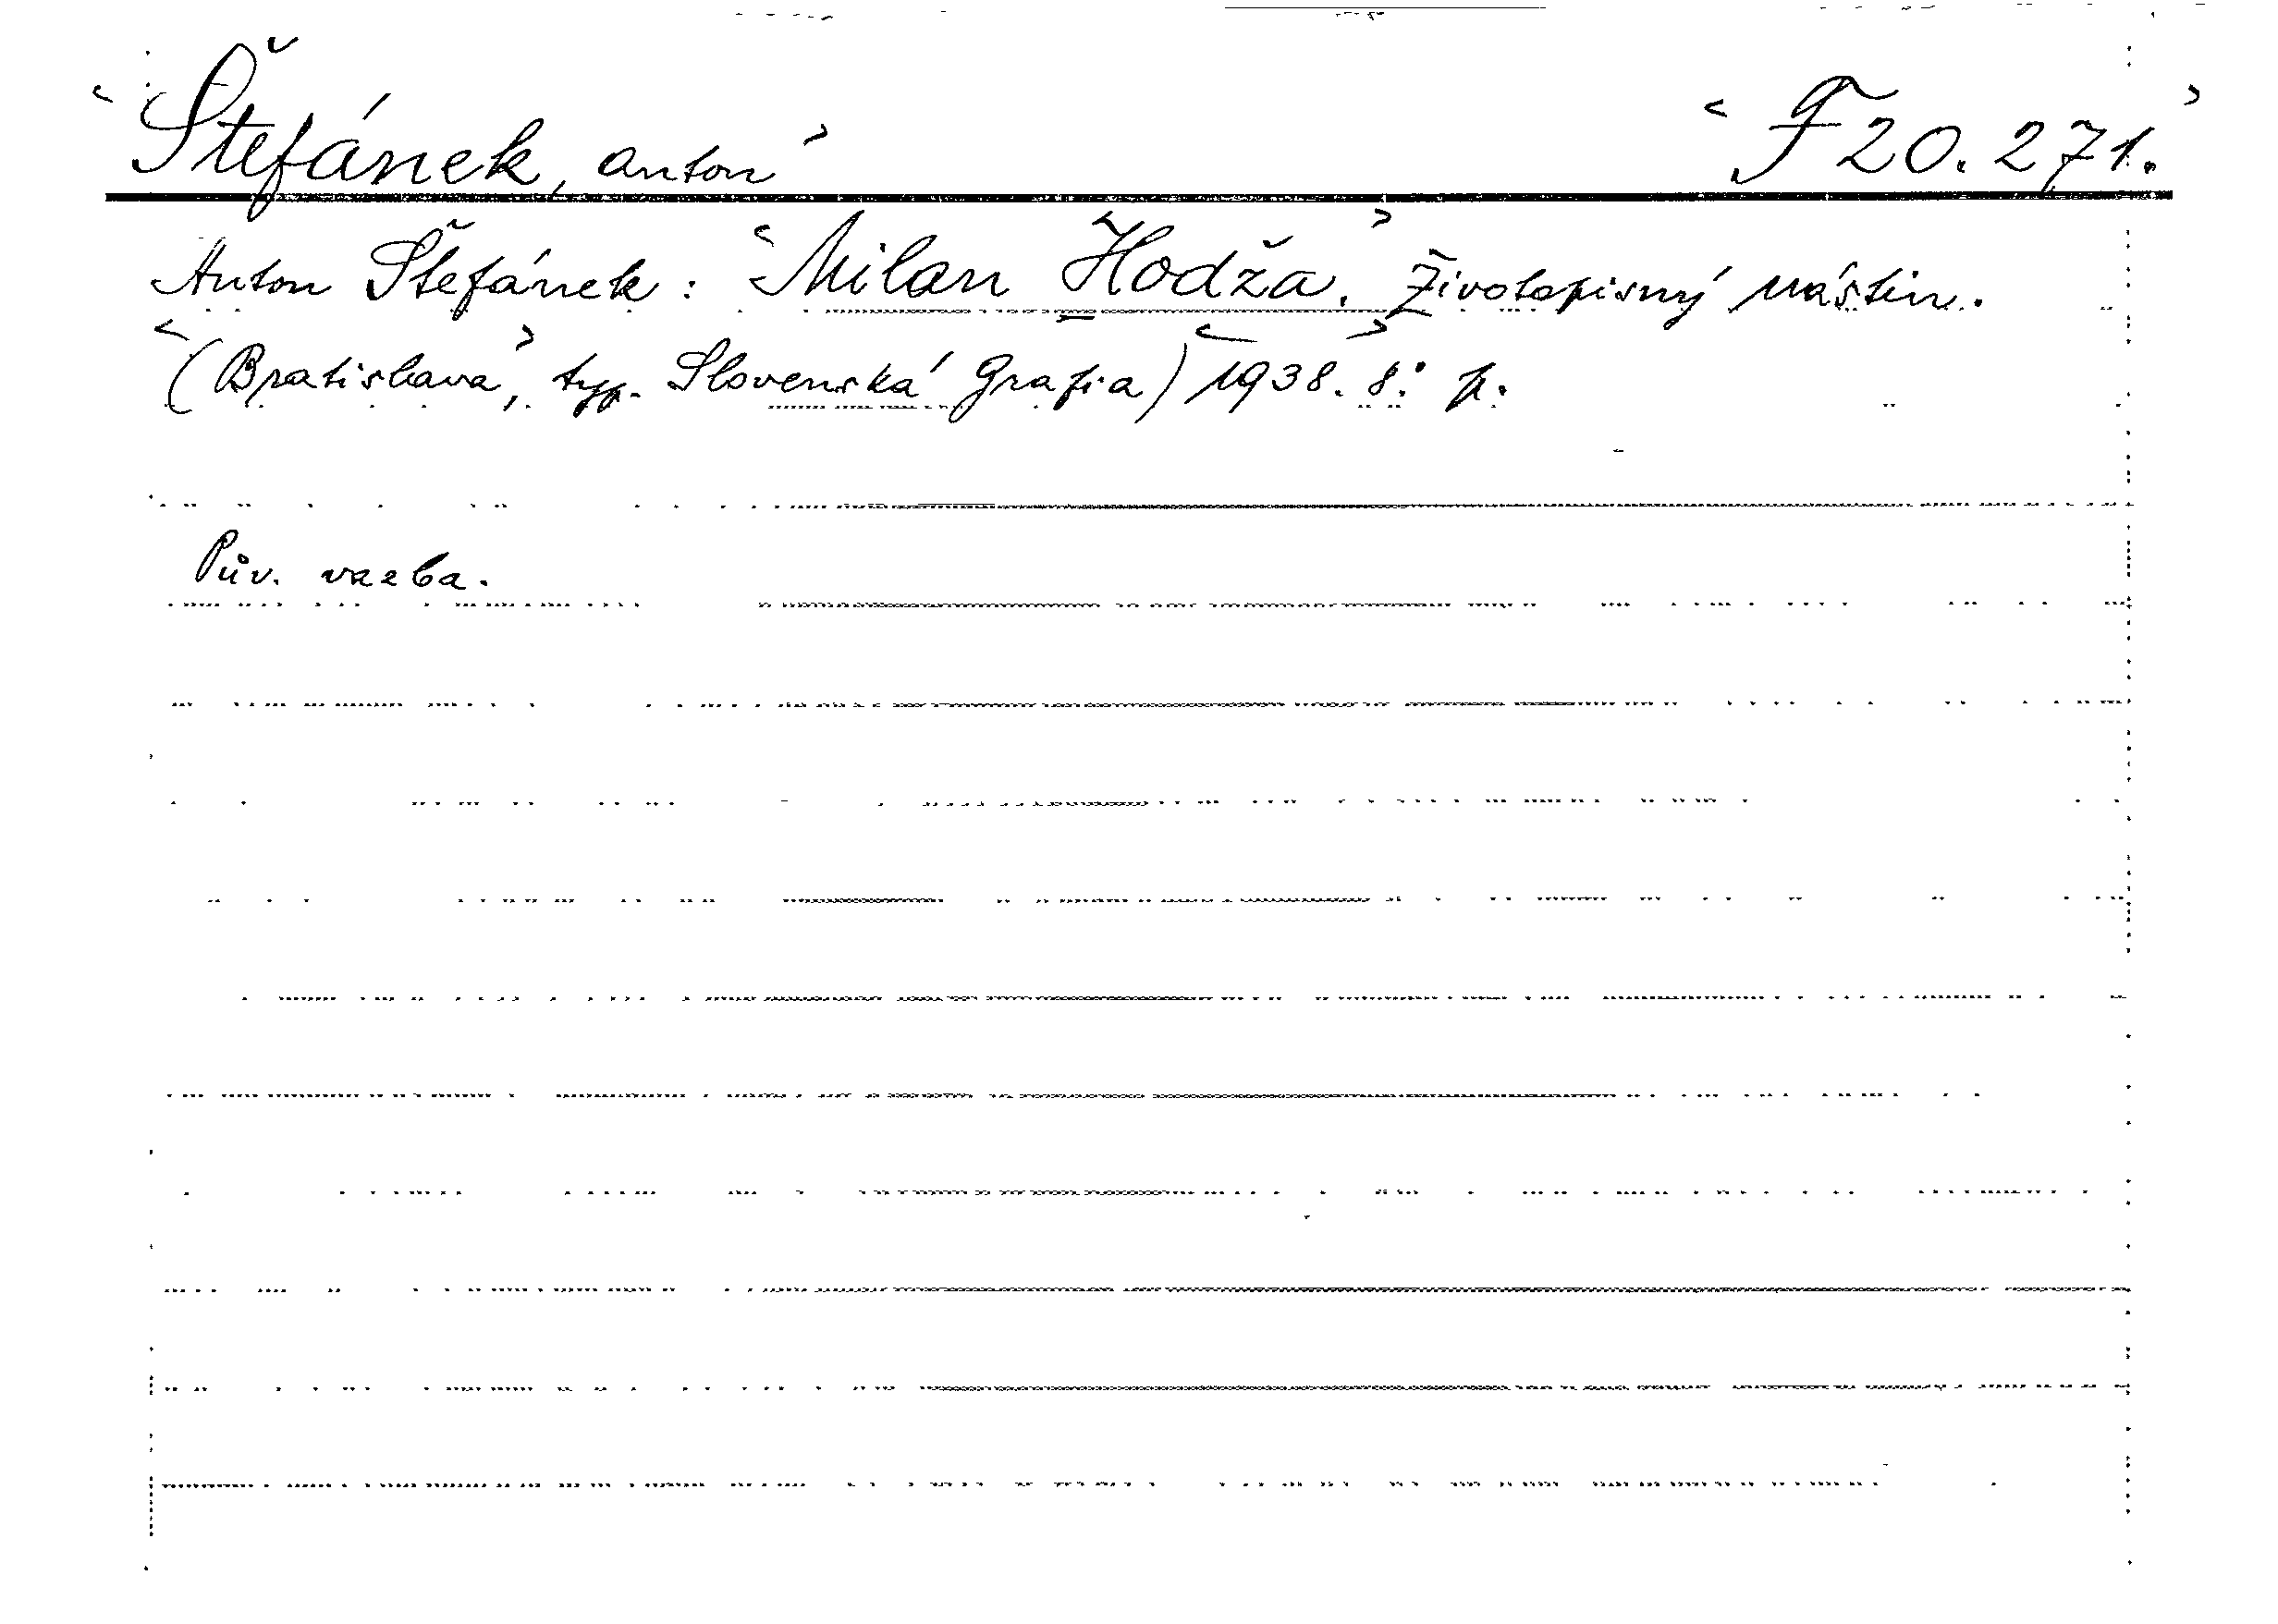 <Štefánek, Anton> <F 20.271.>
Anton Štefánek: <Milan Hodža.> Životopisný nástin.
<(Bratislava>, typ. Slovenská Grafia) <1938>. 8° p.
Pův. vazba.